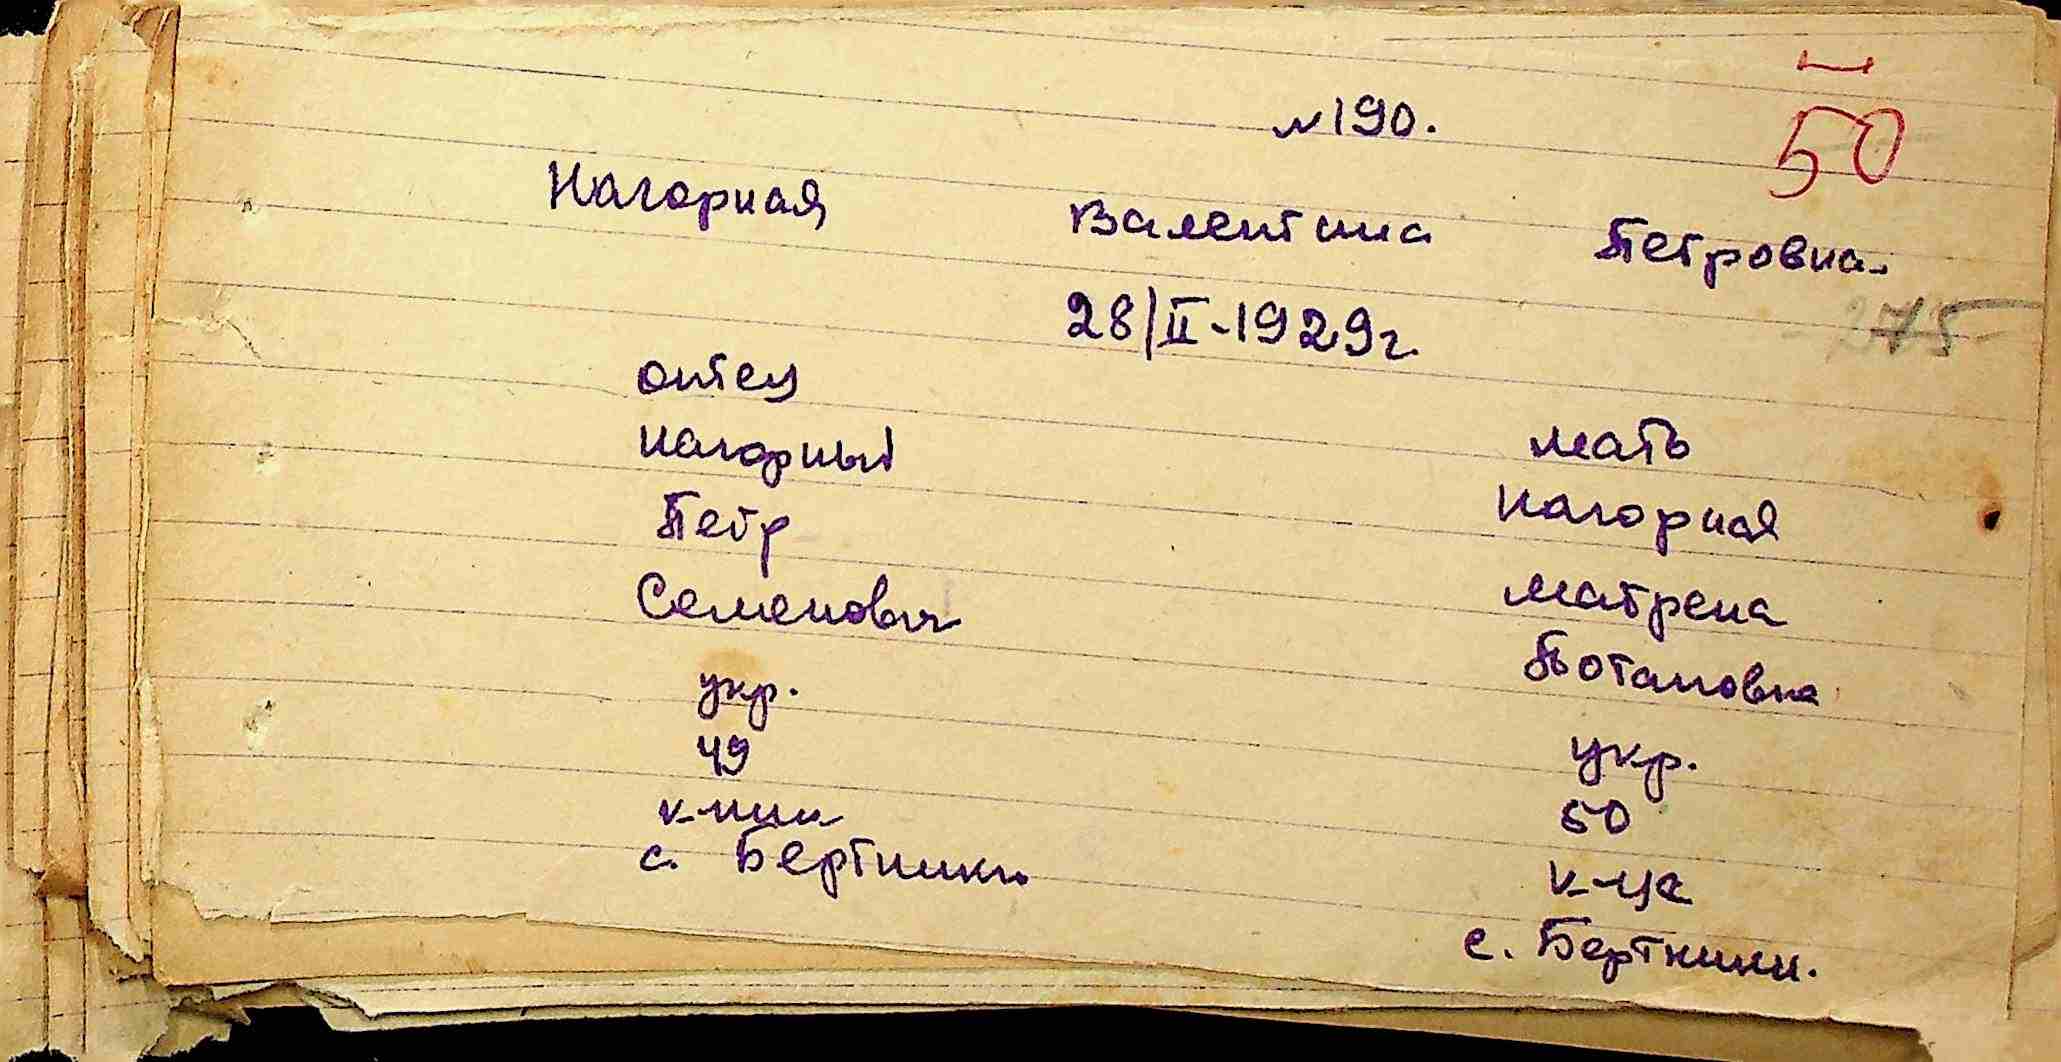 50
№190.
Нагорная Валентина Петровна.
28/II-1929г.
275
отец
Нагорный
Петр
Семенович
укр.
49
к-ник
с. Бертники
мать
Нагорная
Матрена
Потаповна
укр.
50
к-ца
с. Бертники.